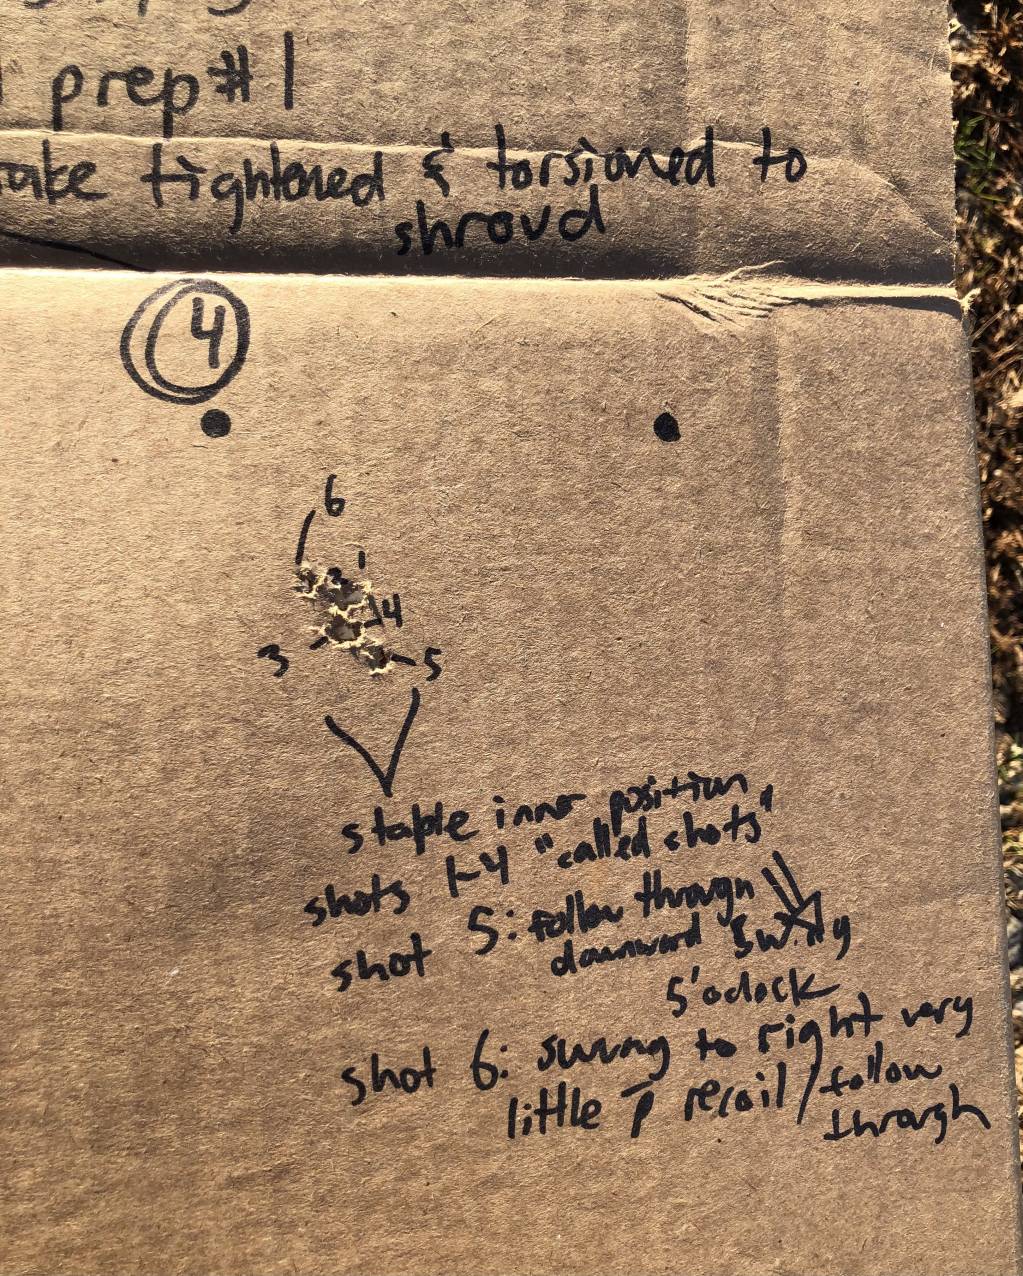 prep #1
tightened & torsioned to
shroud
4
6
1
2
4
3
5
stable inner position
shots 1-4 "called shots"
shot 5: follow through
downward swing
5 'oclock
shot 6: swing to right very
little p̄ recoil/follow
through